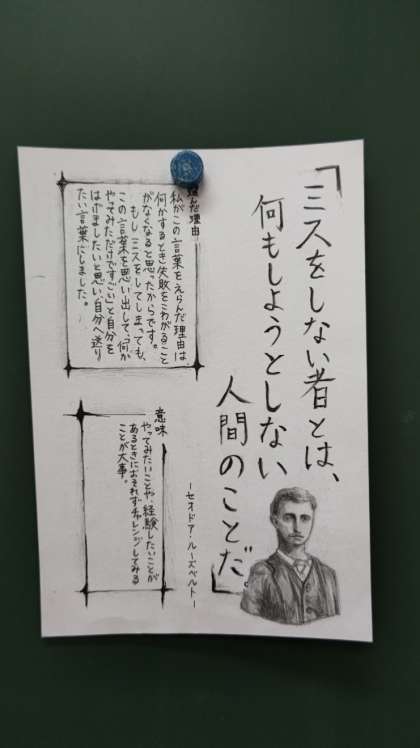 「ミスをしない者とは、
何もしようとしない
人間のことだ」。
ーセオドア・ルーズベルトー
選んだ理由
私がこの言葉をえらんだ理由は
何かするとき失敗をこわがること
がなくなると思ったからです。
もしミスをしてしまっても、
この言葉を思い出して、何か
やってみただけですごいと自分を
はげましたいと思い、自分へ送り
たい言葉にしました。
意味
やってみたいことや、経験したいことが
あるときにおそれずチャレンジしてみる
ことが大事。